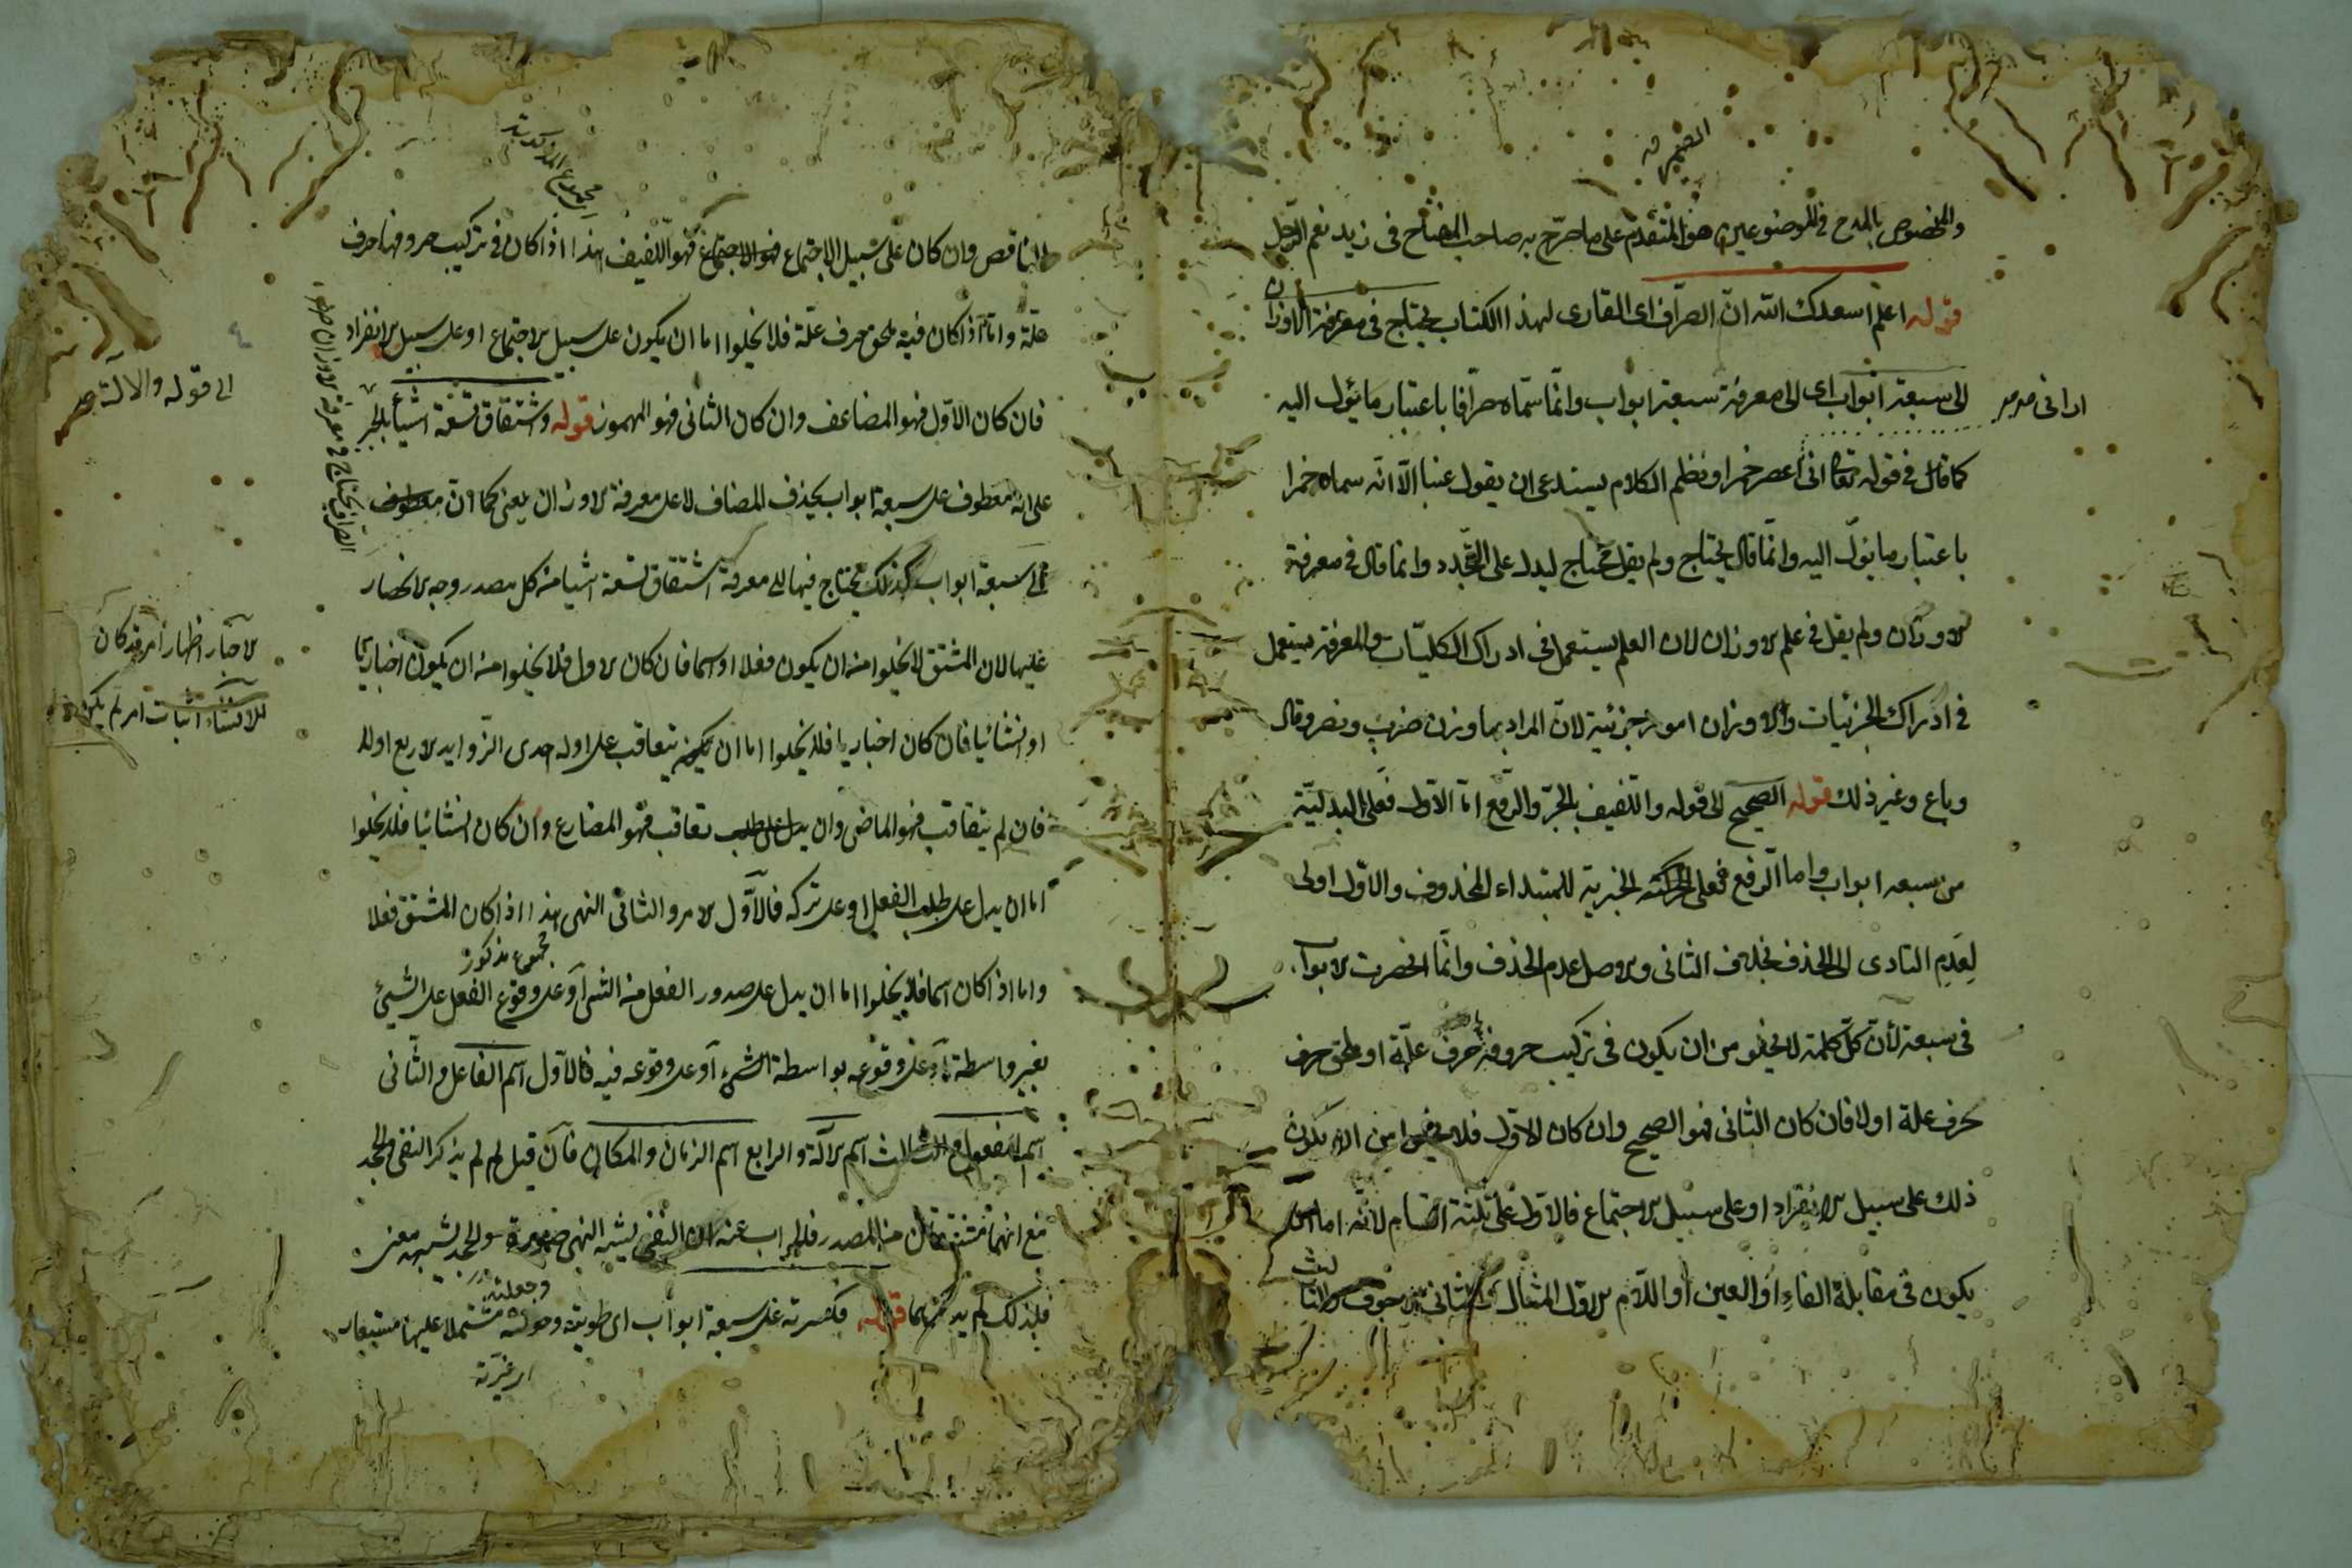 والمخصوص بالمدح في الموضوعين هو المتقدم على ما صرح به صاحب المفتاح في زيد نعم الرجل
قوله اعلم اسعدك الله ان الصراف اى القارى لهذا الكتاب يحتاج في معرفة الاوزان
الى سبعة ابواب اى الى معرفة سبعة ابواب وانما سماه صرافا باعتبار ما يئول اليه
كما قال في قوله تعالى انى اعصر خمرا ونظم الكلام يستدعى ان يقول عنبا الا انه سماه خمرا
باعتبار ما يئول اليه وانما قال يحتاج ولم يقل محتاج ليدل على التجدد وانما قال في معرفة
الاوزان ولم يقل في علم الاوزان لان العلم يستعمل في ادراك الكليات والمعرفة يستعمل
في ادراك الجزئيات والاوزان امور جزئية لان المراد بها وزن ضرب ونصر وقال
وباع وغير ذلك قوله الصحيح الى قوله واللفيف بالجر والرفع اما الاول فعلى البدلية
من سبعه ابواب واما الرفع فعلى الخبرية للمبتداء المحذوف والاول اولى
لعدم التادى الى الحذف بخلاف الثانى والاصل عدم الحذف وانما انحصرت الابواب
في سبعة لأن كل كلمة لا يخلو من ان يكون في تركيب حروفه حرف علة او ملحق حرف
بحرف علة اولا فان كان الثانى فهو الصحيح وان كان الاول فلا يخلوا من ان يكون
ذلك على سبيل الانفراد او على سبيل الاجتماع فالاول على ثلثة اقسام لانه اما ان
يكون في مقابلة الفاء او العين او اللام الاول المثال والثانى الاجوف والثالث
الناقص وان كان على سبيل الاجتماع فهو اللفيف هذا اذا كان في تركيب حروفها حرف
علة واما اذا كان فيه ملحق بحرف علة فلا يخلوا اما ان يكون على سبيل الاجتماع او على سبيل الانفراد
فان كان الاول فهو المضاعف وان كان الثانى فهو المهموز قوله واشتقاق تسعة اشيأ بالجر
على انه معطوف على سبعة ابواب بحذف المضاف لا على معرفة الاوزان يعنى كما ان
الى سبعة ابواب كذلك يحتاج فيها الى معرفة اشتقاق تسعة اشيا من كل مصدر وجه الانحصار
عليها لان المشتق لا يخلوا من ان يكون فعلا او اسما فان كان الاول فلا يخلوا من ان يكون اخباريا
او انشائيا فان كان اخباريا فلا يخلوا اما ان يتعاقب على اوله احدى الزوايد الاربع اولا
فان لم يتعاقب فهو الماضى وان تعاقب فهو المضارع وان كان انشائيا فلا يخلوا
اما ان يدل على طلب الفعل او على تركه فالاول الامر والثانى النهى هذا اذا كان المشتق فعلا
واما اذا كان اسما فلا يخلوا اما ان يدل على صدور الفعل من الشئ او على وقوع الفعل على الشيئ
بغير واسطة او على وقوعه بواسطة الشئ او على وقوعه فيه فالاول اسم الفاعل والثانى
اسم المفعول والثالث اسم الآلة والرابع اسم الزمان والمكان فان قيل لم لم يذكر النفى والجحد
مع انهما مشتقان من المصدر فالجواب عنه ان النفى يشبه النهى صورة والجحد يشبهه معنى
فلذلك لم يذكرهما قوله فكسرته على سبعة ابواب اى طويته وجعلته مشتملا عليها
الى قوله والآلة
الاخبار اظهار امر قد كان
الانشاء اثبات امر لم يكن